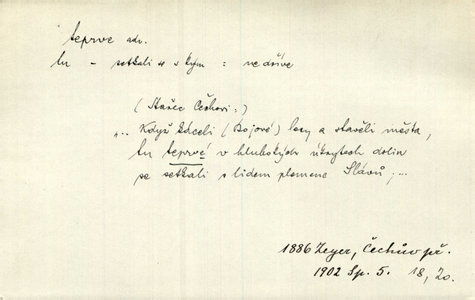 teprve adv.
tu – setkali se s kým : ne dříve
(Stařec Čechovi:)
„... Když káceli (Bojové) lesy a stavěli města,
tu teprvé v hlubokých úkrytech dolin
se setkali s lidem plemene Slávů; ...
1886 Zeyer, Čechův př.
1902 Sp. 5. 18, 20.